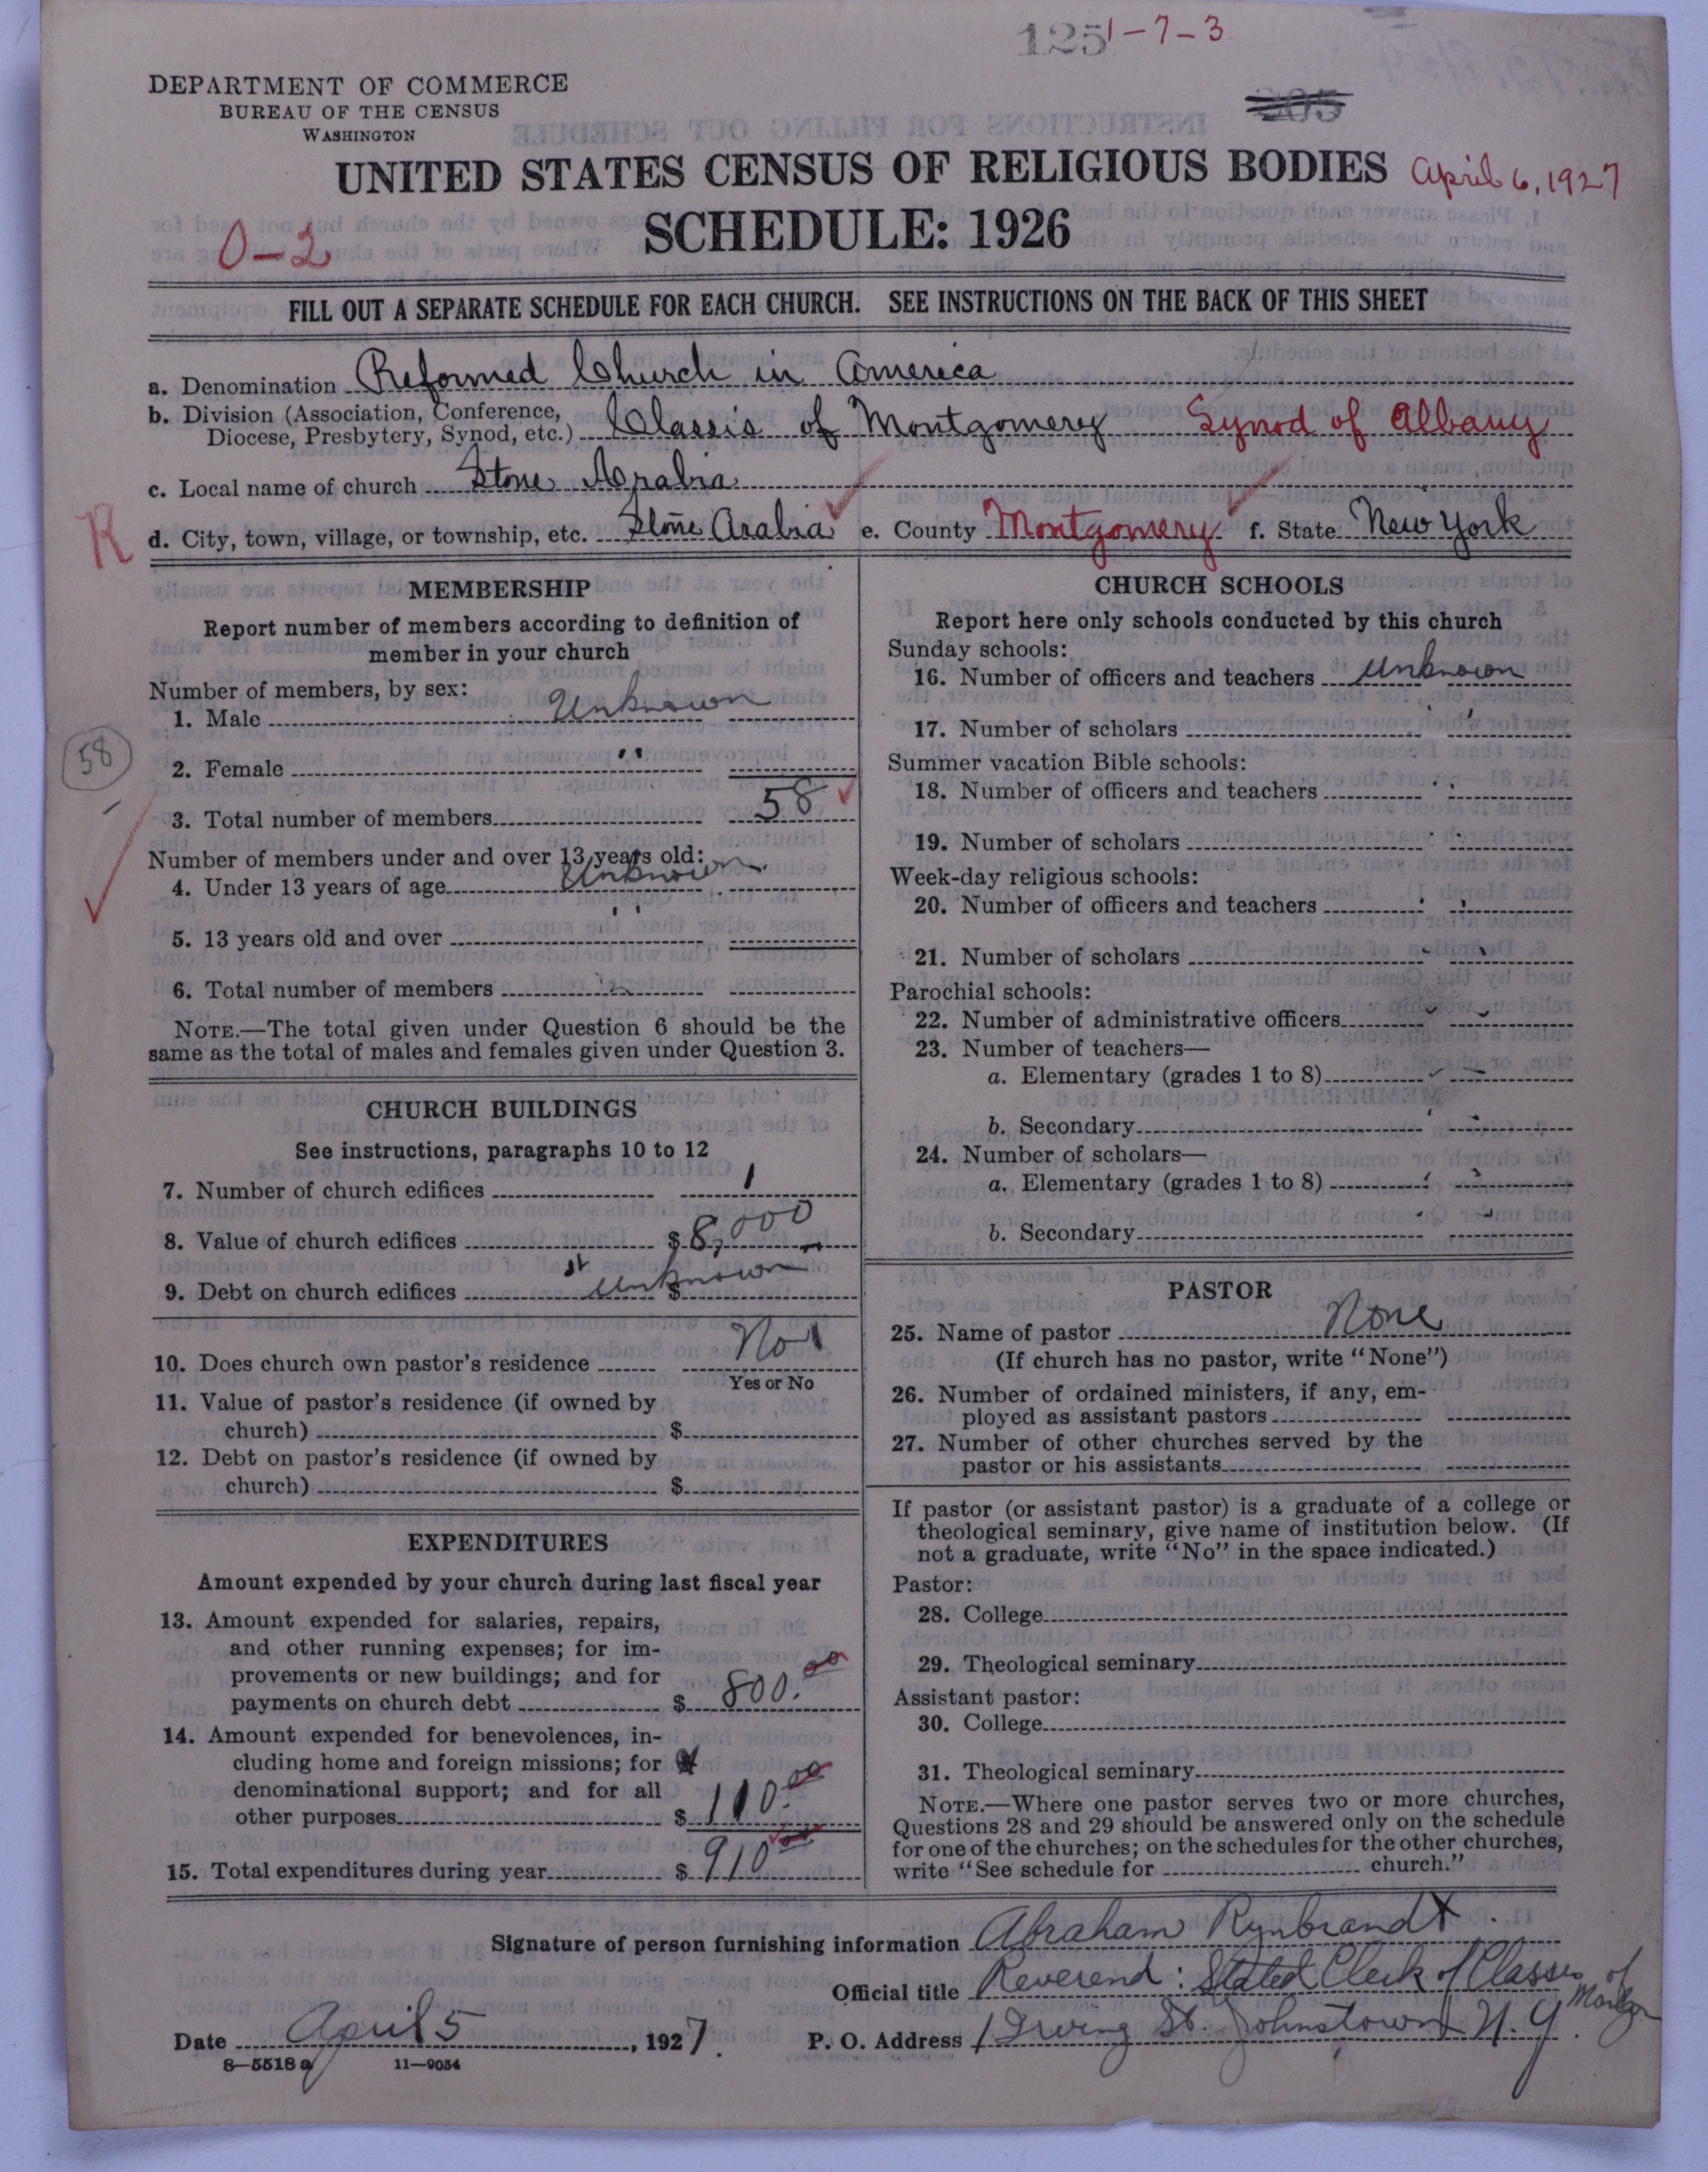 125 1-7-3
DEPARTMENT OF COMMERCE
BUREAU OF THE CENSUS
WASHINGTON
205
UNITED STATES CENSUS OF RELIGIOUS BODIES April 6, 1927
SCHEDULE: 1926
0-2
FILL OUT A SEPARATE SCHEDULE FOR EACH CHURCH. SEE INSTRUCTIONS ON THE BACK OF THIS SHEET
a. Denomination Reformed Church in America
b. Division (Association, Conference,
Diocese, Presbytery, Synod, etc.) Classis of Montgomery Synod of Albany
c. Local name of church Stone Arabia
R d. City, town, village, or township, etc. Stone Arabia e. County Montgomery f. State New York
MEMBERSHIP
Report number of members according to definition of
member in your church
Number of members, by sex:
1. Male Unknown
58
2. Female "
3. Total number of members 58
Number of members under and over 13 years old:
4. Under 13 years of age Unknown
5. 13 years old and over "
6. Total number of members
NOTE.—The total given under Question 6 should be the
same as the total of males and females given under Question 3.
CHURCH BUILDINGS
See instructions, paragraphs 10 to 12
7. Number of church edifices 1
8. Value of church edifices $ 8,000
9. Debt on church edifices $ Unknown
10. Does church own pastor's residence No
Yes or No
11. Value of pastor's residence (if owned by
church) $
12. Debt on pastor's residence (if owned by
church) $
EXPENDITURES
Amount expended by your church during last fiscal year
13. Amount expended for salaries, repairs,
and other running expenses; for im-
provements or new buildings; and for
payments on church debt $ 800.00
14. Amount expended for benevolences, in-
cluding home and foreign missions; for
denominational support; and for all
other purposes $ 110.00
15. Total expenditures during year $ 910.00
CHURCH SCHOOLS
Report here only schools conducted by this church
Sunday schools:
16. Number of officers and teachers Unknown
17. Number of scholars "
Summer vacation Bible schools:
18. Number of officers and teachers
19. Number of scholars
Week-day religious schools:
20. Number of officers and teachers
21. Number of scholars
Parochial schools:
22. Number of administrative officers
23. Number of teachers—
a. Elementary (grades 1 to 8)
b. Secondary
24. Number of scholars—
a. Elementary (grades 1 to 8)
b. Secondary
PASTOR
25. Name of pastor None
(If church has no pastor, write "None")
26. Number of ordained ministers, if any, em-
ployed as assistant pastors
27. Number of other churches served by the
pastor or his assistants
If pastor (or assistant pastor) is a graduate of a college or
theological seminary, give name of institution below. (If
not a graduate, write "No" in the space indicated.)
Pastor:
28. College
29. Theological seminary
Assistant pastor:
30. College
31. Theological seminary
NOTE.—Where one pastor serves two or more churches,
Questions 28 and 29 should be answered only on the schedule
for one of the churches; on the schedules for the other churches,
write "See schedule for church."
Signature of person furnishing information Abraham Rynbrandt
Official title Reverend: Stated Clerk of Classis of
Date April 5, 1927. P. O. Address 1 Irving St. Johnstown N.Y.
8—5518a 11—9034